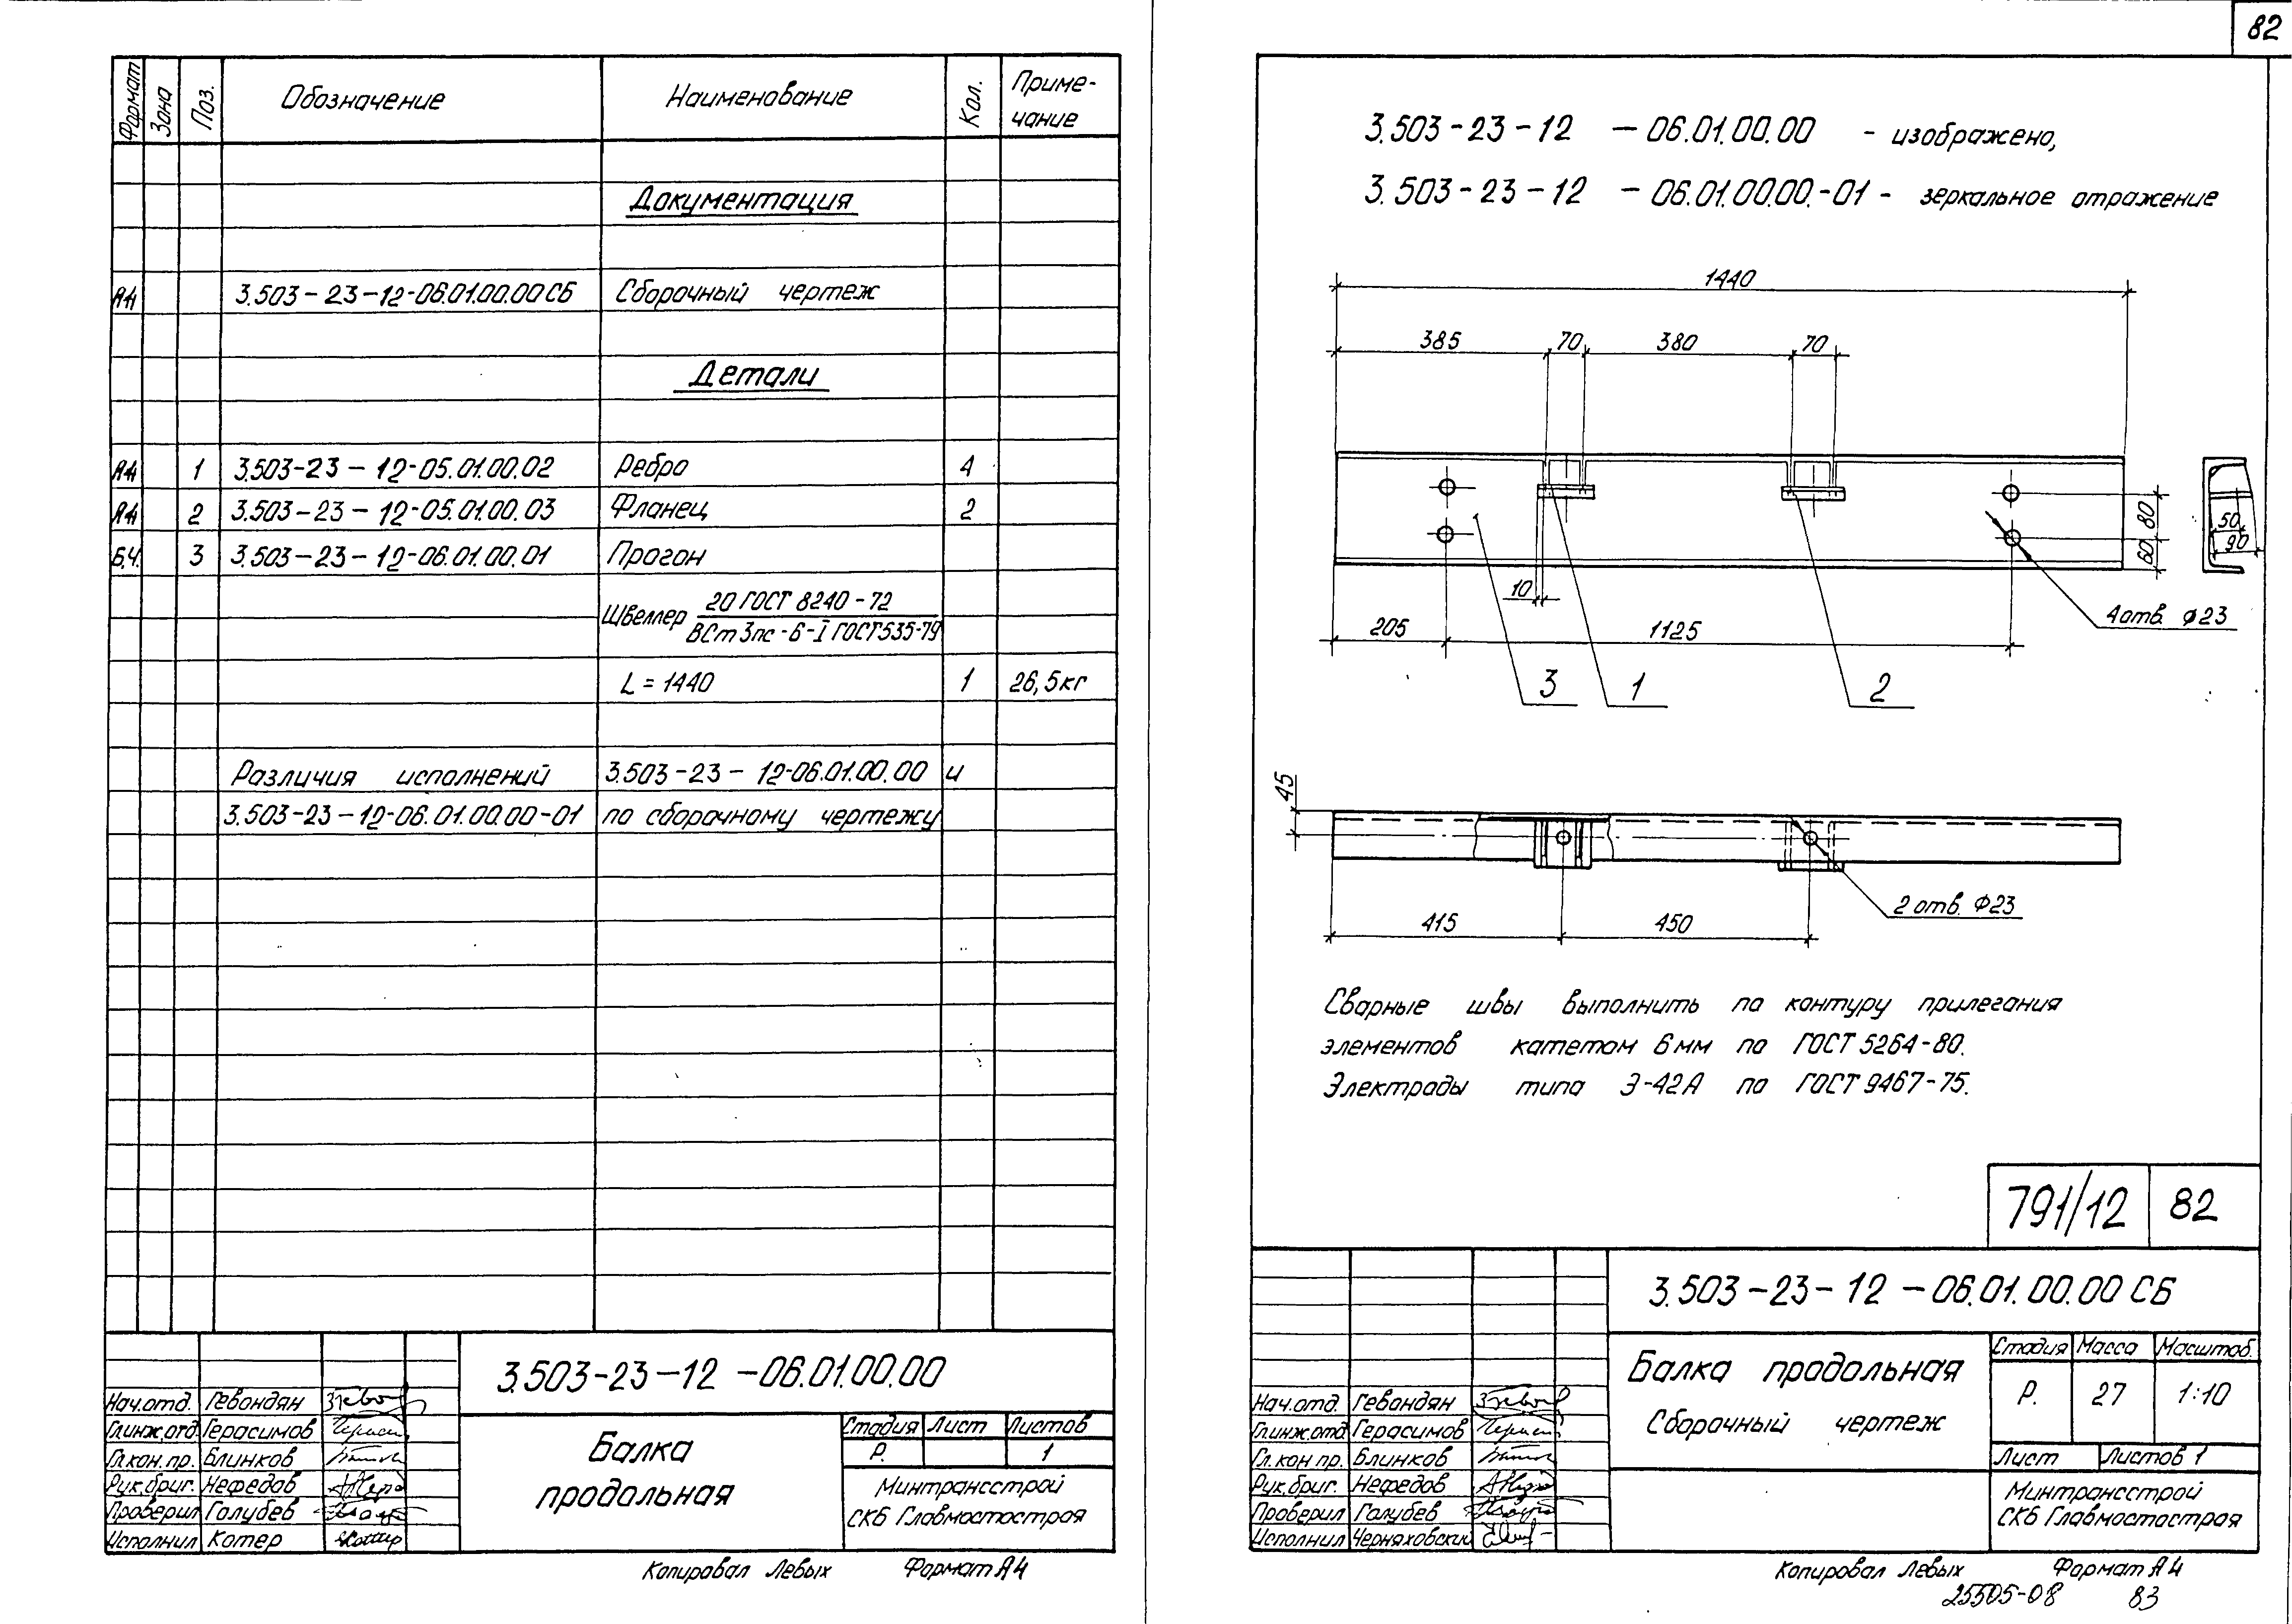 82
Формат Зона Поз. Обозначение Наименование Кол. Приме-
чание
Документация
А4 3.503-23-12-06.01.00.00 СБ Сборочный чертеж
Детали
А4 1 3.503-23-12-05.01.00.02 Ребро 4
А4 2 3.503-23-12-05.01.00.03 Фланец 2
Б.Ч. 3 3.503-23-12-06.01.00.01 Прогон
Швеллер 20 ГОСТ 8240-72
ВСт3пс-6-I ГОСТ535-79
L = 1440 1 26,5кг
Различия исполнений 3.503-23-12-06.01.00.00 и
3.503-23-12-06.01.00.00-01 по сборочному чертежу
3.503-23-12-06.01.00.00
Нач.отд. Гевондян
Гл.инж.отд Герасимов
Гл.кон.пр. Блинков
Рук.бриг. Нефедов
Проверил Голубев
Исполнил Котер
Балка
продольная
Стадия Лист Листов
Р. 1
Минтрансстрой
СКБ Главмостостроя
Копировал Левых Формат А4
3.503-23-12 -06.01.00.00 - изображено,
3.503-23-12 -06.01.00.00.-01 - зеркальное отражение
1440
385 70 380 70
80
60
50
90
10
4 отв. ф23
205 1125
3 1 2
45
2 отв. Ф23
415 450
Сварные швы выполнить по контуру прилегания
элементов катетом 6 мм по ГОСТ 5264-80.
Электроды типа Э-42А по ГОСТ 9467-75.
791/12 82
3.503-23-12-06.01.00.00 СБ
Балка продольная
Сборочный чертеж
Стадия Масса Масштаб.
Р. 27 1:10
Лист Листов 1
Нач.отд. Гевондян
Гл.инж.отд Герасимов
Гл.кон пр. Блинков
Рук.бриг. Нефедов
Проверил Голубев
Исполнил Черняховский
Минтрансстрой
СКБ Главмостостроя
Копировал Левых Формат А4
25505-08 83